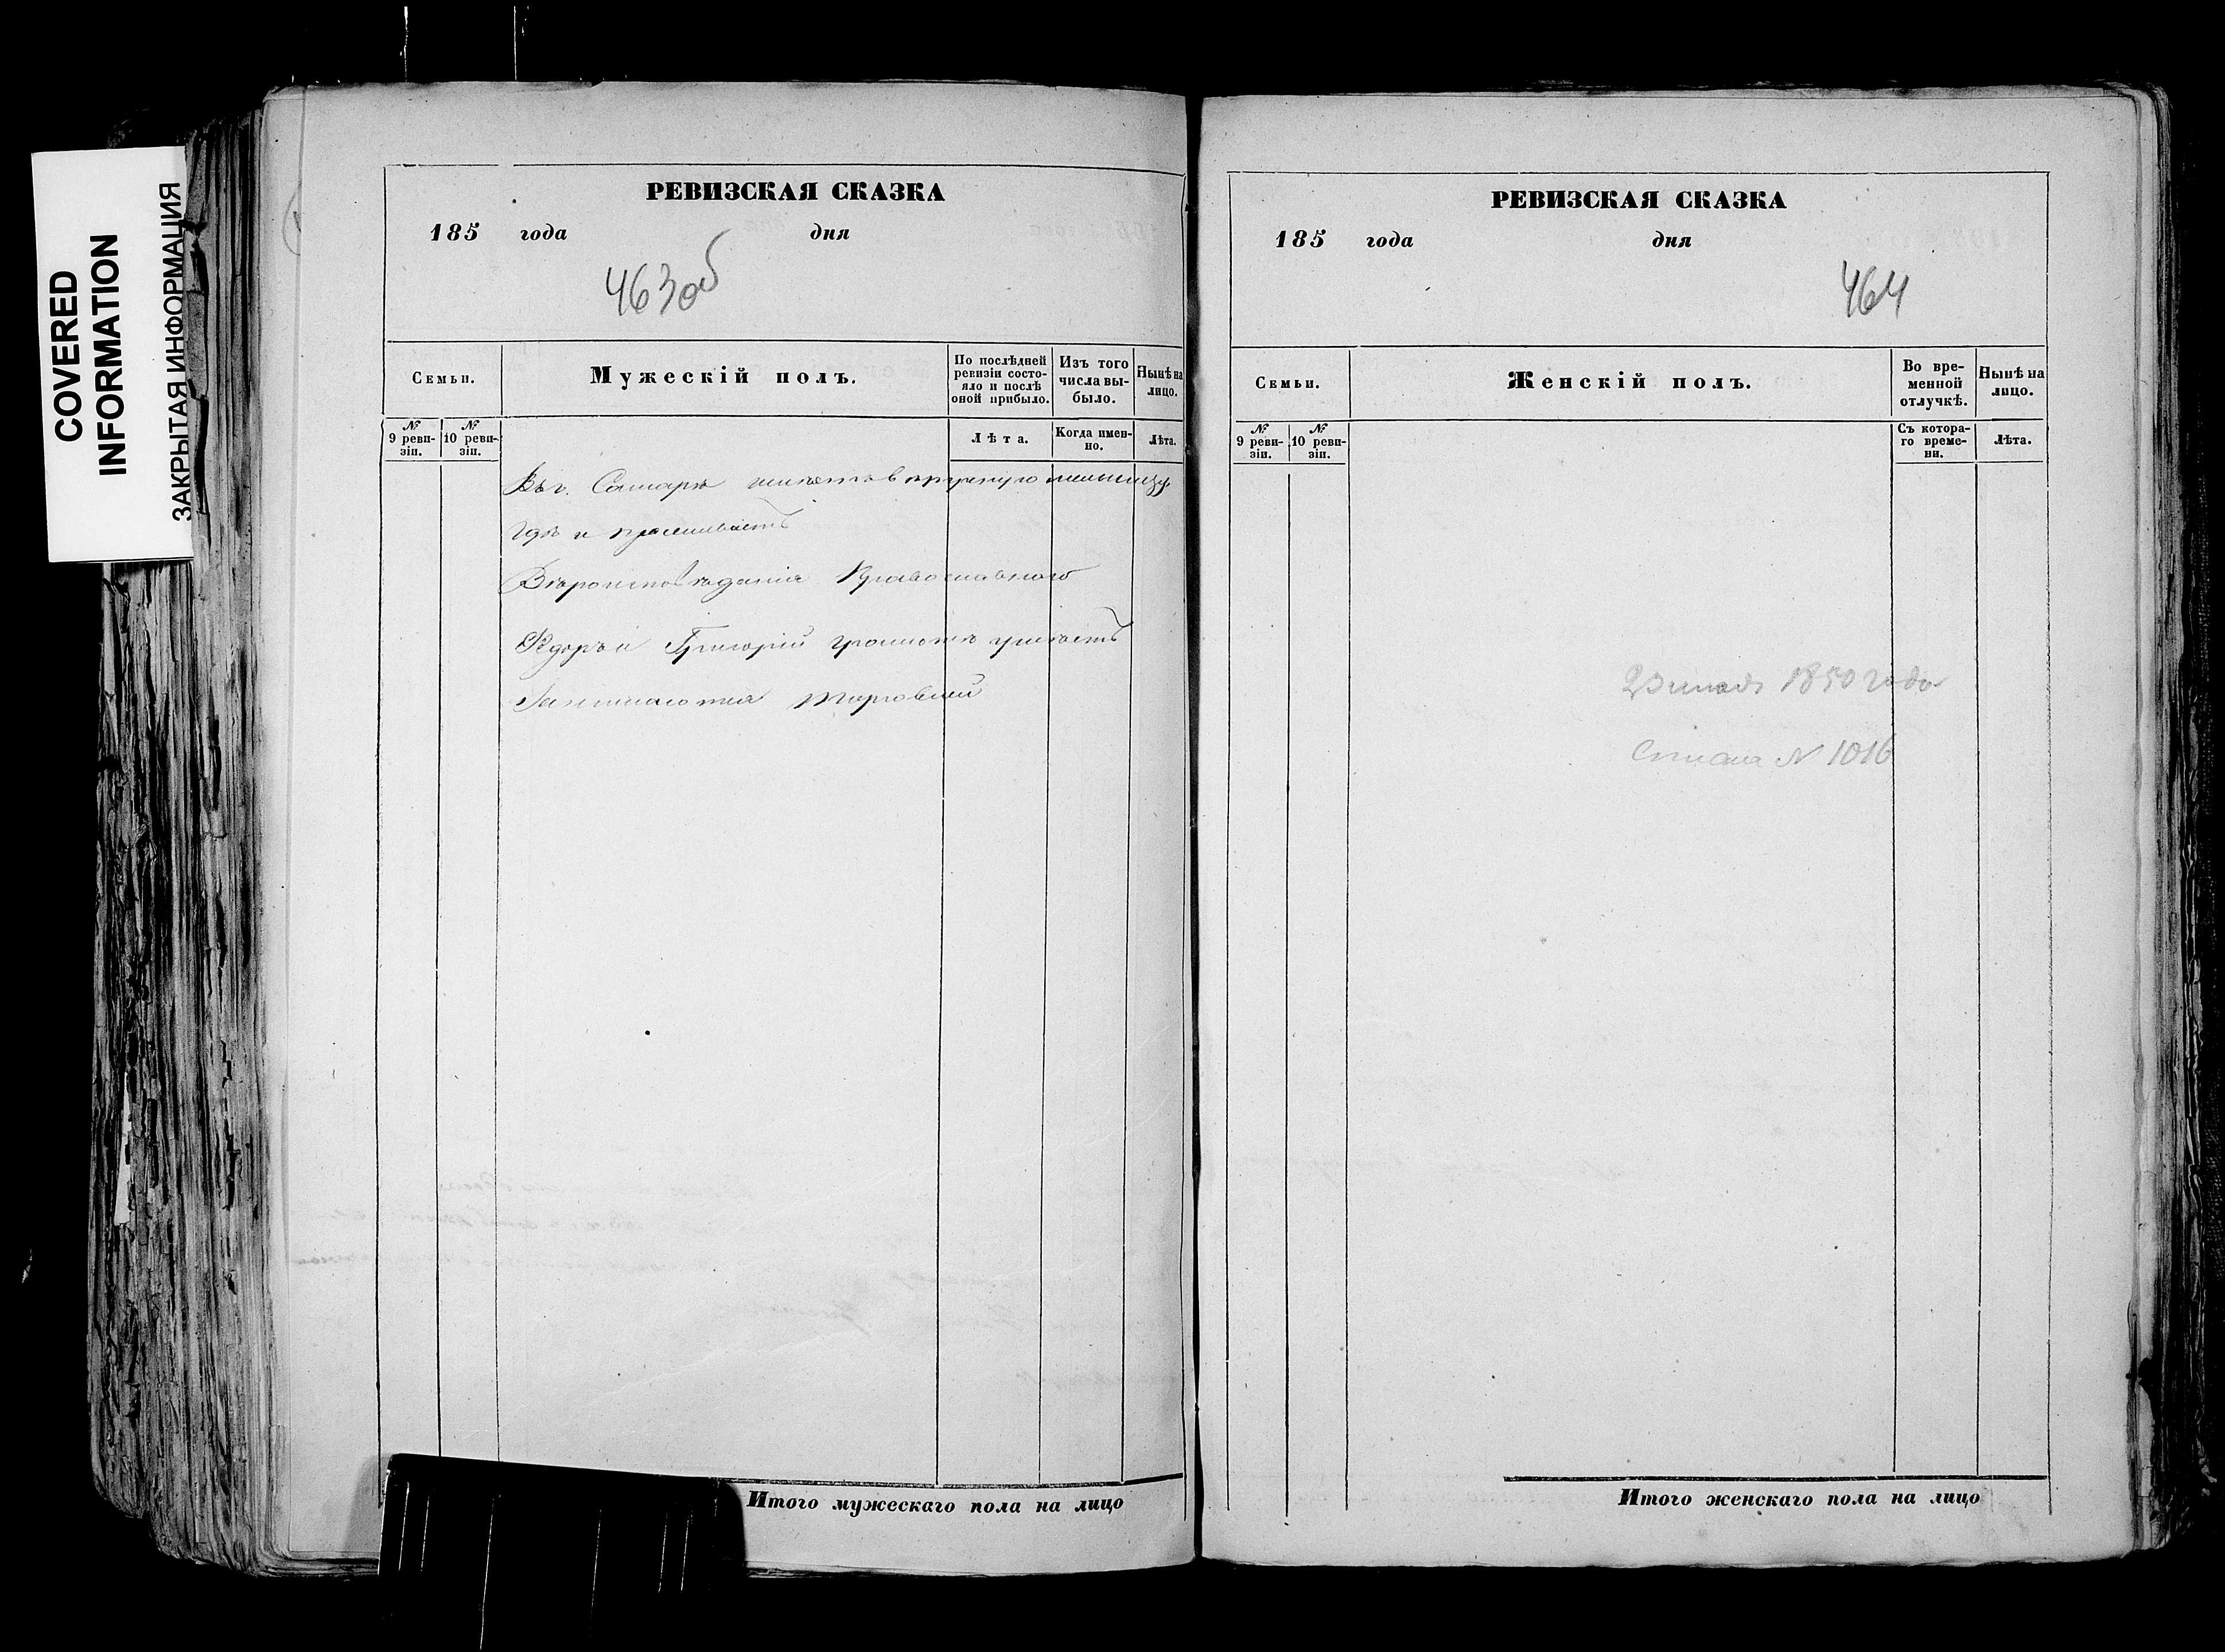 COVERED
INFORMATION
ЗАКРЫТАЯ ИНФОРМАЦИЯ
РЕВИЗСКАЯ СКАЗКА
185 года дня
463об
Семьи.
Мужескій полъ.
По послѣдней
ревизіи состо-
яло и послѣ
оной прибыло.
Изъ того
числа вы-
было.
Нынѣ на
лицо.
№
9 реви-
зіи.
№
10 реви-
зіи.
Лѣта.
Когда имен-
но.
Лѣта.
Въ г. Самарѣ имѣетъ вѣтряную мельницу
гдѣ и проживаетъ
Вѣроисповѣданія Православного
Ѳедоръ и Григорій грамотѣ умѣютъ
Занимаются торговлей
Итого мужескаго пола на лицо
РЕВИЗСКАЯ СКАЗКА
185 года дня
464
Семьи.
Женскій полъ.
Во вре-
менной
отлучкѣ.
Нынѣ на
лицо.
№
9 реви-
зіи.
№
10 реви-
зіи.
Съ котора-
го време-
ни.
Лѣта.
1850 года
№ 1016
Итого женскаго пола на лицо